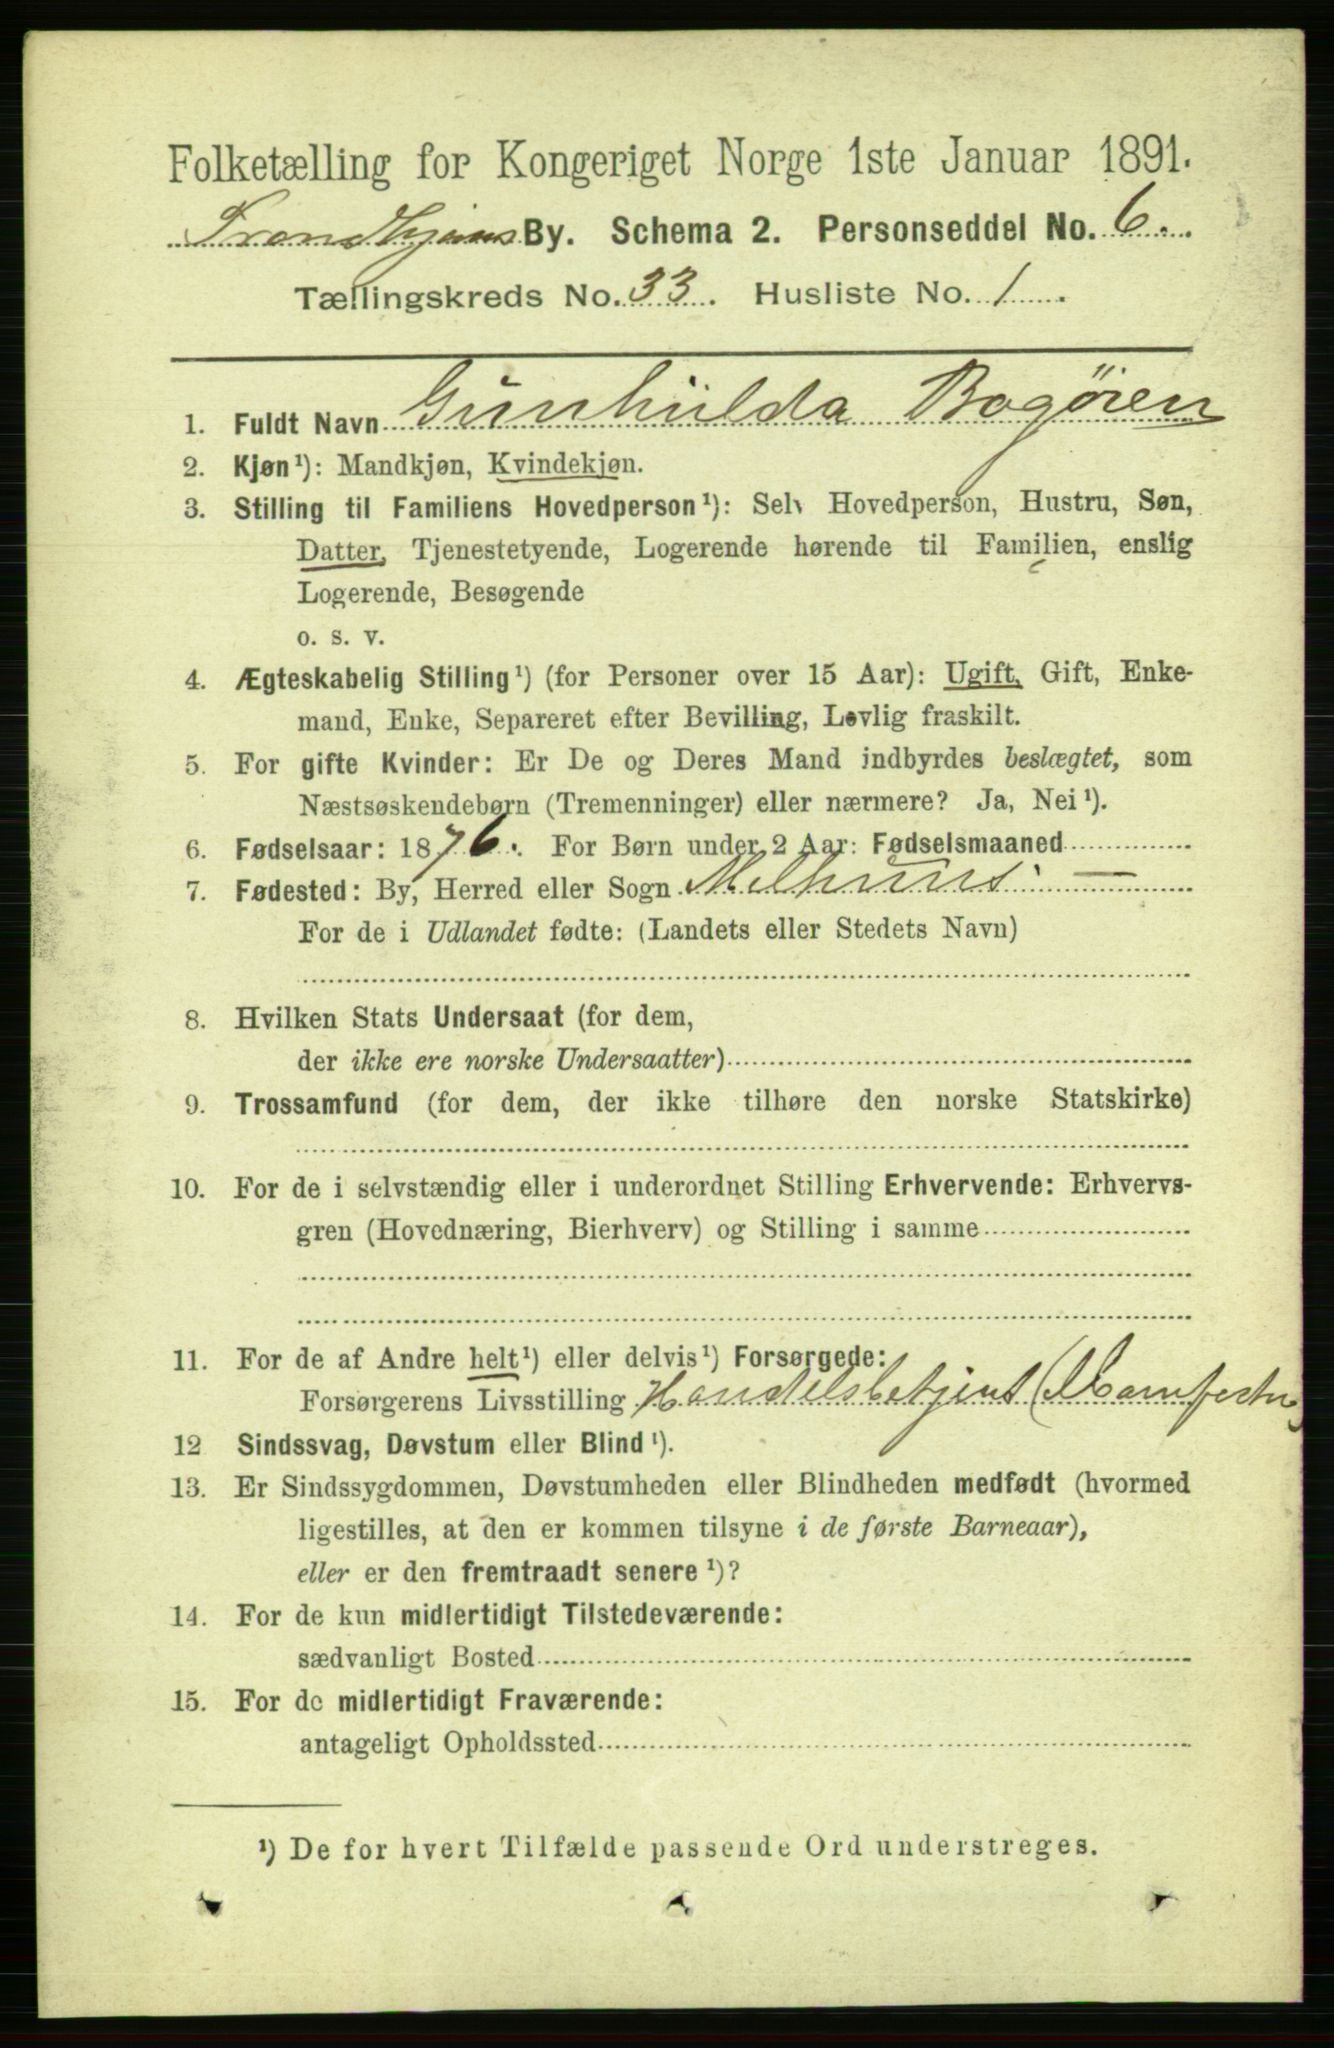 Folketælling for Kongeriget Norge 1ste Januar 1891.
Trondhjems By. Schema 2. Personseddel No. 6.
Tællingskreds No. 33. Husliste No. 1.
1. Fuldt Navn Gunhilda Bogøien
2. Kjøn¹): Mandkjøn, Kvindekjøn.
3. Stilling til Familiens Hovedperson¹): Selv Hovedperson, Hustru, Søn,
Datter, Tjenestetyende, Logerende hørende til Familien, enslig
Logerende, Besøgende
o. s. v.
4. Ægteskabelig Stilling¹) (for Personer over 15 Aar): Ugift, Gift, Enke-
mand, Enke, Separeret efter Bevilling, Lovlig fraskilt.
5. For gifte Kvinder: Er De og Deres Mand indbyrdes beslægtet, som
Næstsøskendebørn (Tremenninger) eller nærmere? Ja, Nei¹).
6. Fødselsaar: 1876. For Børn under 2 Aar: Fødselsmaaned
7. Fødested: By, Herred eller Sogn Melhuus —
For de i Udlandet fødte: (Landets eller Stedets Navn)
8. Hvilken Stats Undersaat (for dem,
der ikke ere norske Undersaatter)
9. Trossamfund (for dem, der ikke tilhøre den norske Statskirke)
10. For de i selvstændig eller i underordnet Stilling Erhvervende: Erhvervs-
gren (Hovednæring, Bierhverv) og Stilling i samme
11. For de af Andre helt¹) eller delvis¹) Forsørgede:
Forsørgerens Livsstilling Handelsbetjent
12 Sindssvag, Døvstum eller Blind¹).
13. Er Sindssygdommen, Døvstumheden eller Blindheden medfødt (hvormed
ligestilles, at den er kommen tilsyne i de første Barneaar),
eller er den fremtraadt senere¹)?
14. For de kun midlertidigt Tilstedeværende:
sædvanligt Bosted
15. For de midlertidigt Fraværende:
antageligt Opholdssted
¹) De for hvert Tilfælde passende Ord understreges.